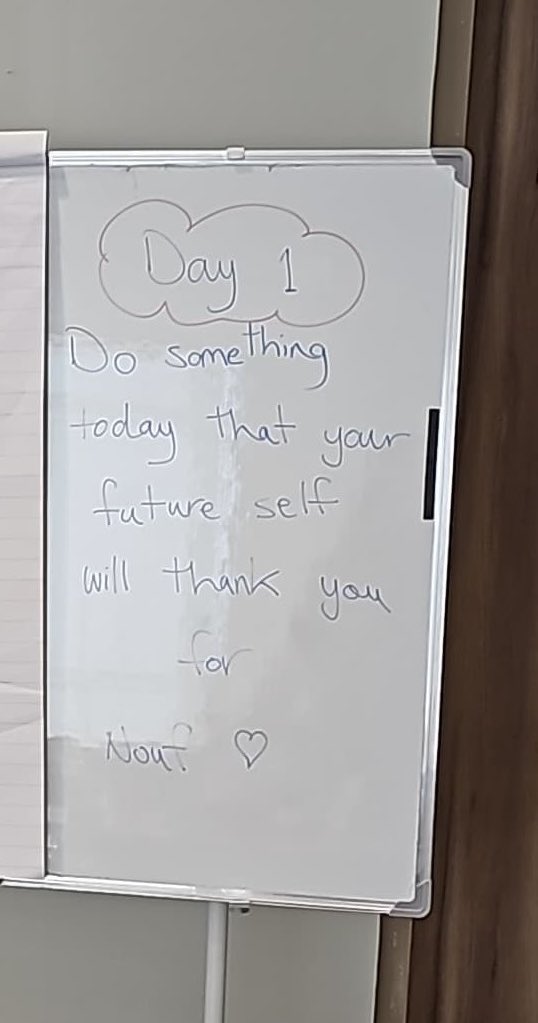 Day 1
Do something
today that your
future self
will thank you
for
Nouf ♡